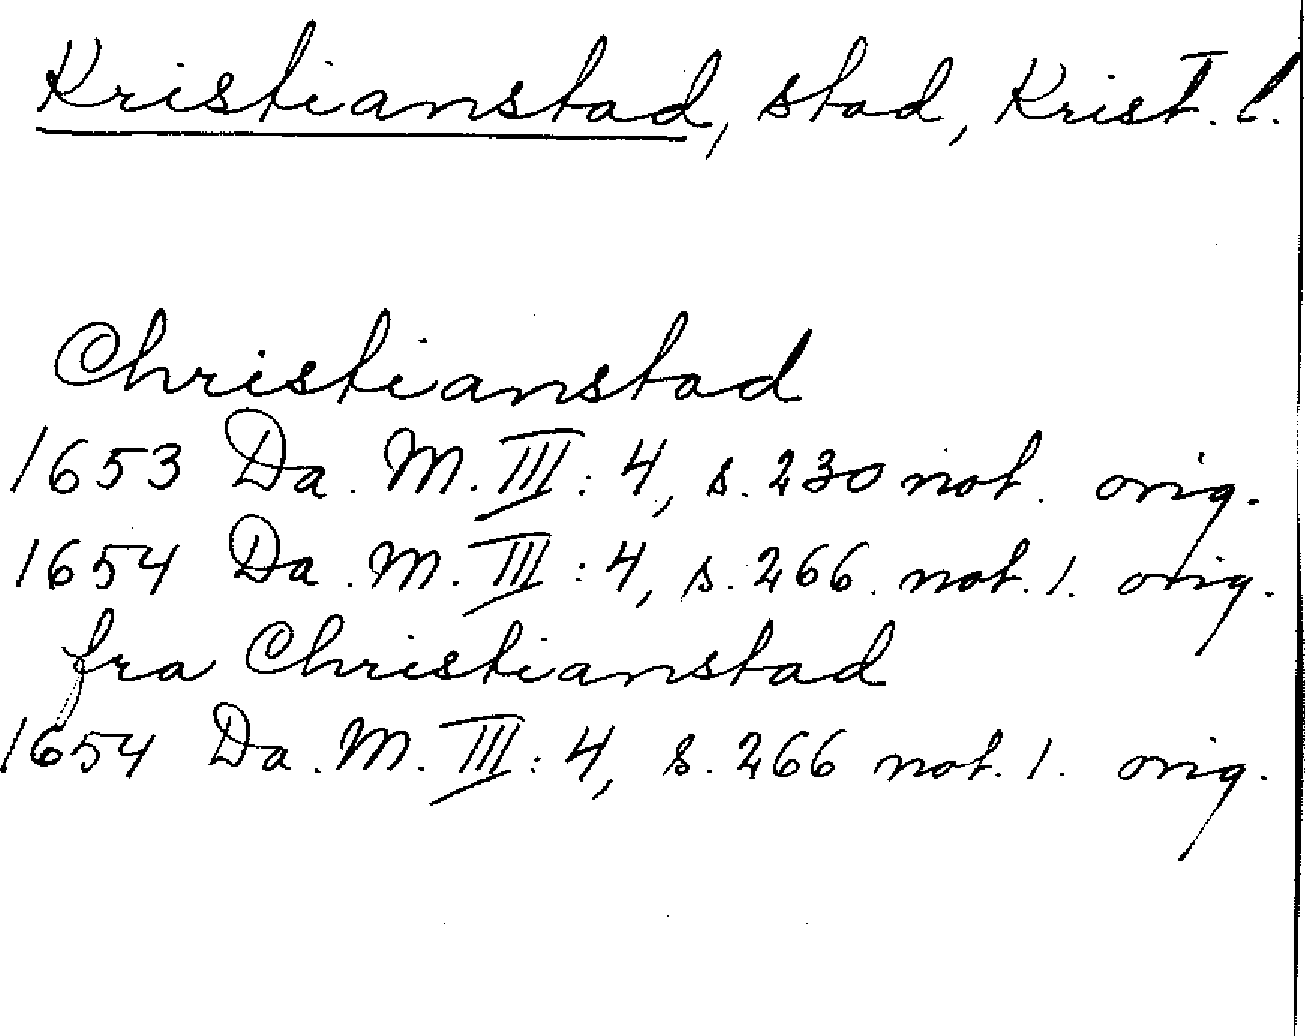 Kristianstad, stad, Krist. l.
Christianstad
1653 Da. M. III: 4, s. 230 not. orig.
1654 Da. M. III: 4, s. 266. not. 1. orig.
fra Christianstad
1654 Da. M. III: 4, s. 266 not. 1. orig.